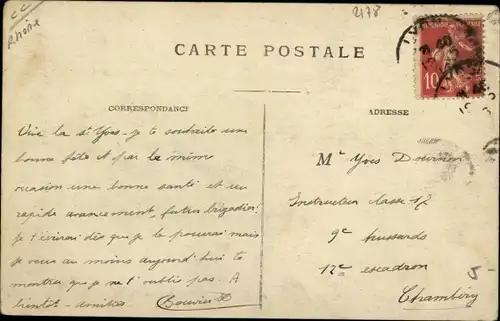 cc
Rhône
2178
CARTE POSTALE
LYON
10
CORRESPONDANCE
ADRESSE
Vive la St Yves. je te souhaite une
bonne fête et par la mème
occasion une bonne santé et un
rapide avancement futur brigadier!
je t'écrirai dès que je le pourrai mais
je veux au moins aujourd'hui te
montrer que je ne t'oublie pas. A
bientôt - amitiés Bouvier
Mr Yves Dournon
Instructeur classe 17
9e hussards
12e escadron
Chambéry
5